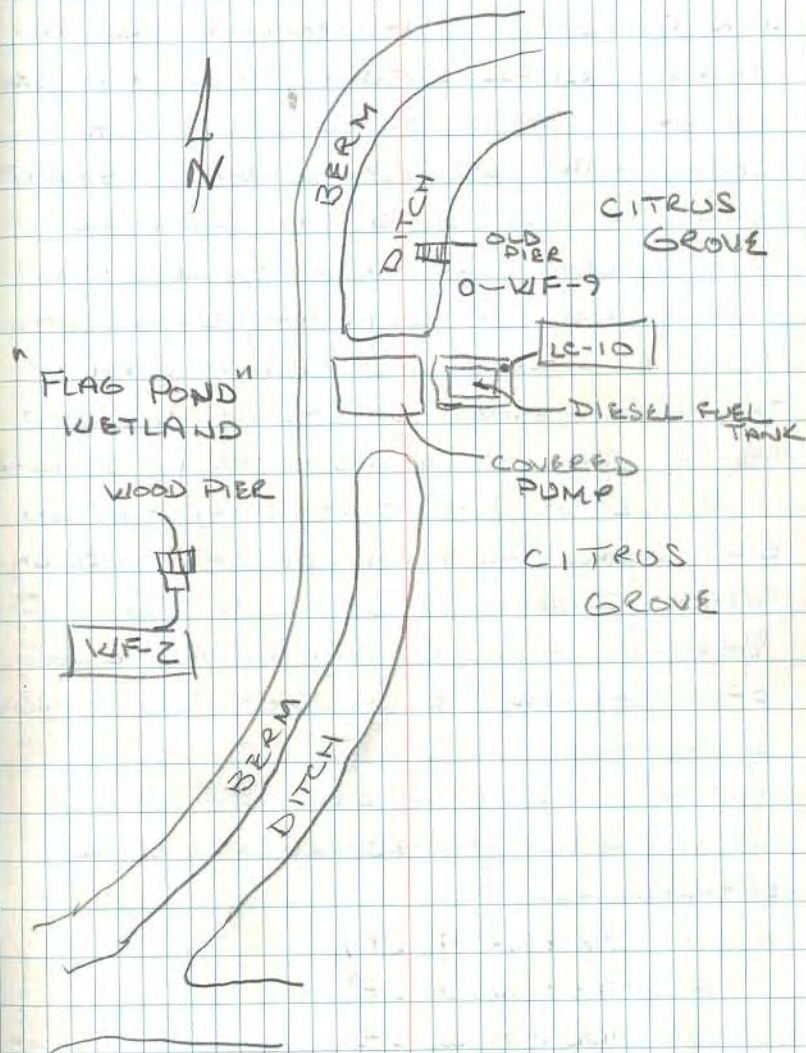 N
BERM
DITCH
CITRUS
GROVE
OLD
PIER
O-WF-9
LC-10
"FLAG POND"
WETLAND
DIESEL FUEL
TANK
COVERED
PUMP
WOOD PIER
CITRUS
GROVE
WF-2
BERM
DITCH